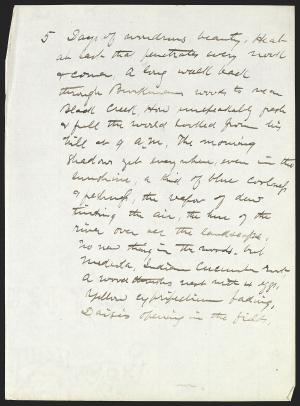 5 Days of wondrous beauty. Heat
at last that penetrates every nook
& corner. A long walk back
through Burkman woods to near
Black Creek. How unspeakably fresh
& full the world looked from his
hill at 9 A.M. The morning
shadows yet everywhere, even in the
sunshine, a kind of blue coolness
& freshness, the vapor of dew
tinting the air, the hue of the
river over all the landscape.
No new thing in the woods. but
Medeola, Indian Cucumber root
A wood nest with 4 eggs.
Yellow cypripedium fading,
Daisies opening in the field.